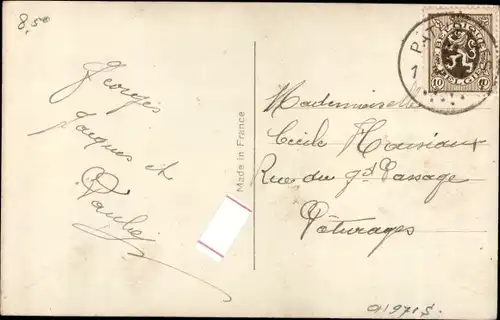 8,5
Georges
Jacques et
Paul
Made in France
PATUR
1
BELGIQUE
BELGIË
10
Mademoiselle
Cécile Housiaux
Rue du gd Passage
Pâturages
a1971 $.